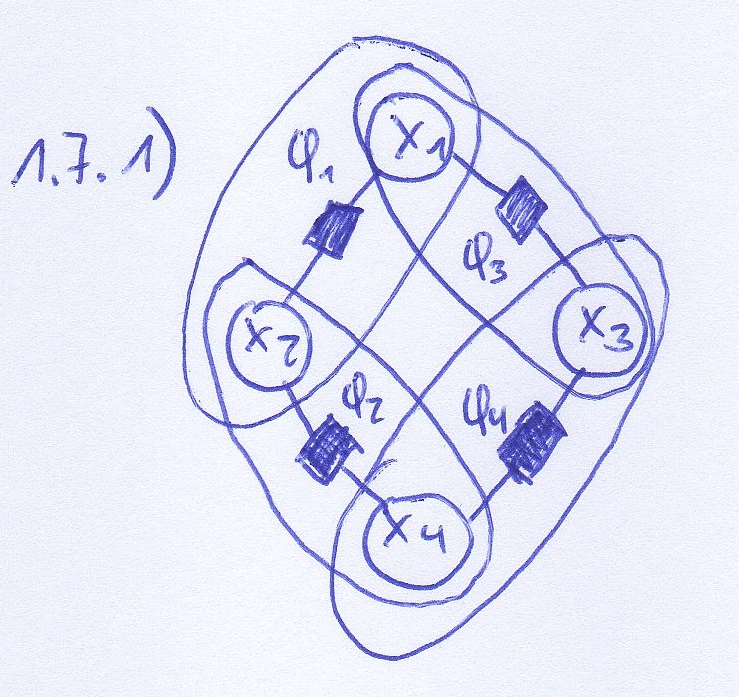 1.7.1)
X1
φ1
φ3
X2
X3
φ2
φ4
X4